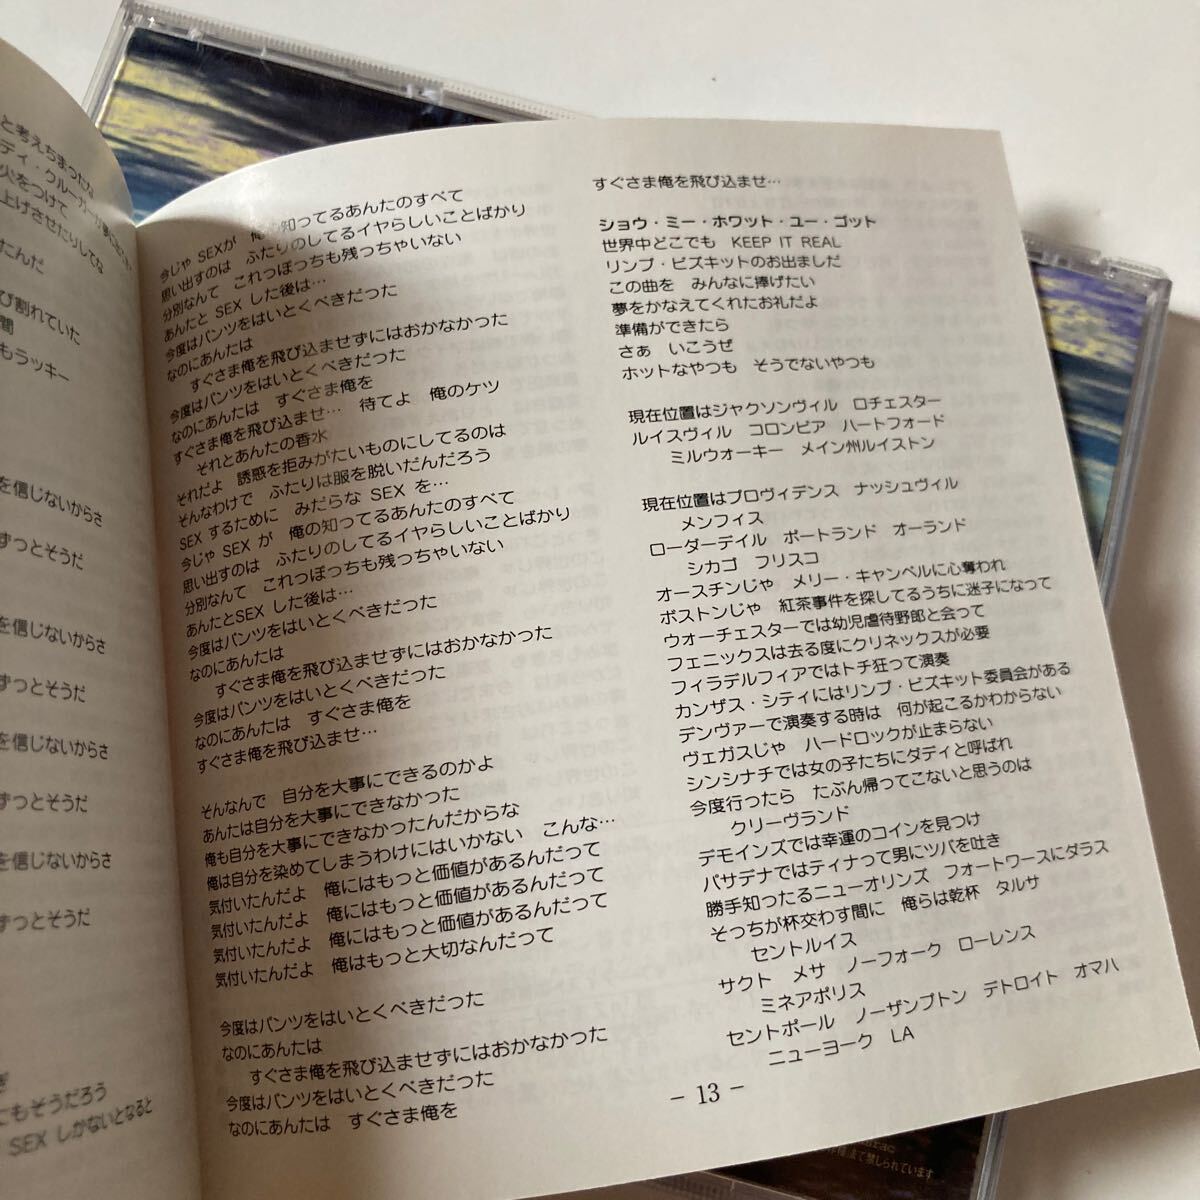 と考えちまったな
ディ・クルーガーが
火をつけて
上げさせたりしてな
たんだ
び割れていた
間
もラッキー
を信じないからさ
ずっとそうだ
を信じないからさ
ずっとそうだ
を信じないからさ
ずっとそうだ
を信じないからさ
ずっとそうだ
こもそうだろう
SEX しかないとなると
今じゃ SEXが 俺の知ってるあんたのすべて
思い出すのは ふたりのしてるイヤらしいことばかり
分別なんて これっぽっちも残っちゃいない
あんたと SEX した後は…
今度はパンツをはいとくべきだった
なのにあんたは
すぐさま俺を飛び込ませずにはおかなかった
今度はパンツをはいとくべきだった
なのにあんたは すぐさま俺を
すぐさま俺を飛び込ませ… 待てよ 俺のケツ
それとあんたの香水
それだよ 誘惑を拒みがたいものにしてるのは
そんなわけで ふたりは服を脱いだんだろう
SEX するために みだらな SEX を…
今じゃ SEX が 俺の知ってるあんたのすべて
思い出すのは ふたりのしてるイヤらしいことばかり
分別なんて これっぽっちも残っちゃいない
あんたとSEX した後は…
今度はパンツをはいとくべきだった
なのにあんたは
すぐさま俺を飛び込ませずにはおかなかった
今度はパンツをはいとくべきだった
なのにあんたは すぐさま俺を
すぐさま俺を飛び込ませ…
そんなんで 自分を大事にできるのかよ
あんたは自分を大事にできなかった
俺も自分を大事にできなかったんだからな
俺は自分を染めてしまうわけにはいかない こんな…
気付いたんだよ 俺にはもっと価値があるんだって
気付いたんだよ 俺にはもっと価値があるんだって
気付いたんだよ 俺にはもっと価値があるんだって
気付いたんだよ 俺はもっと大切なんだって
今度はパンツをはいとくべきだった
なのにあんたは
すぐさま俺を飛び込ませずにはおかなかった
今度はパンツをはいとくべきだった
なのにあんたは すぐさま俺を
すぐさま俺を飛び込ませ…
ショウ・ミー・ホワット・ユー・ゴット
世界中どこでも KEEP IT REAL
リンプ・ビズキットのお出ましだ
この曲を みんなに捧げたい
夢をかなえてくれたお礼だよ
準備ができたら
さぁ いこうぜ
ホットなやつも そうでないやつも
現在位置はジャクソンヴィル ロチェスター
ルイスヴィル コロンビア ハートフォード
ミルウォーキー メイン州ルイストン
現在位置はプロヴィデンス ナッシュヴィル
メンフィス
ローダーデイル ポートランド オーランド
シカゴ フリスコ
オースチンじゃ メリー・キャンベルに心奪われ
ボストンじゃ 紅茶事件を探してるうちに迷子になって
ウォーチェスターでは幼児虐待野郎と会って
フェニックスは去る度にクリネックスが必要
フィラデルフィアではトチ狂って演奏
カンザス・シティにはリンプ・ビズキット委員会がある
デンヴァーで演奏する時は 何が起こるかわからない
ヴェガスじゃ ハードロックが止まらない
シンシナチでは女の子たちにダディと呼ばれ
今度行ったら たぶん帰ってこないと思うのは
クリーヴランド
デモインズでは幸運のコインを見つけ
パサデナではティナって男にツバを吐き
勝手知ったるニューオリンズ フォートワースにダラス
そっちが杯交わす間に 俺らは乾杯 タルサ
セントルイス
サクト メサ ノーフォーク ローレンス
ミネアポリス
セントポール ノーザンプトン デトロイト オマハ
ニューヨーク LA
− 13 −
て禁じられています